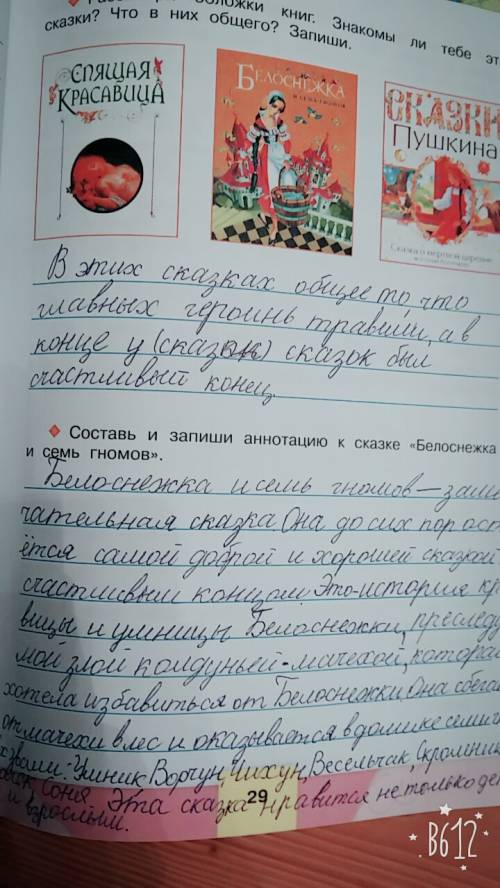 обложки книг. Знакомы ли тебе эт
сказки? Что в них общего? Запиши.
СПЯЩАЯ
КРАСАВИЦА
БЕЛОСНЕЖКА
И СЕМЬ ГНОМОВ
СКАЗКИ
Пушкина
Сказка о мертвой царевне
В этих сказках общее то, что
главных героинь травили, а в
конце у (сказки) сказок был
счастливый конец.
Составь и запиши аннотацию к сказке «Белоснежка
и семь гномов».
Белоснежка и семь гномов – заме
чательная сказка. Она до сих пор ост
ётся самой доброй и хорошей сказкой
счастливым концом. Это-история кра
вицы и умницы Белоснежки, преследу
мой злой колдуньей-мачехой, которая
хотела избавиться от Белоснежки. Она сбега
от мачехи в лес и оказывается в домике семи
Умник, Ворчун, Чихун, Весельчак, Скромник
Соня. Эта сказка нравится не только де
и взрослым.
29
B612